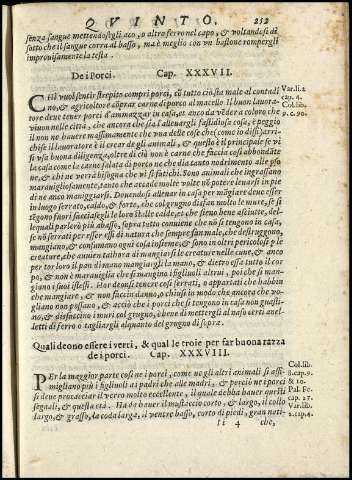 QVINTO. 252
senza sangue mettendosegli aco, o altro ferro nel capo, & voltandosi di
sotto che il sangue corra al basso, ma è meglio con un bastone rompergli
improvisamente la testa.
De i Porci. Cap. XXXVII.
CHi vuol sentir strepito compri porci, cō tutto ciò sta male al contadi
no, & agricoltore cōprar carne di porco al macello. Il buon lavora-
tore deve tener porci d'ammazzar in casa, et ancor da vēdere a coloro che
vivon nelle città, che ancora che sia l'allevargli fastidiosa cosa, è peggio
il non ne havere massimamente che una delle cose che (come io dissi) arri-
chisce il lavoratore è il crear de gli animali, & questo è il principale se vi
si usa buona diligenza, oltre di ciò non è carne che faccia così abbondāte
la casa come la carne salata di porco ne che dia tanto nodrimento alle psō
ne, & chi ne verrà bisogna che vi si fatichi. Sono animali che ingrassano
maravigliosamente, tanto che accade molte volte nō potere levarsi in pie
di ne anco maneggiarsi. Dovendosi allevar in casa per mōgiare deve esser
in luogo serrato, caldo, & forte, che col grugno disfan molte mure, se si
tēgono fuori facciasegli le loro stalle calde, et che sieno bene asciutte, del-
lequali parlerò più abasso, sopra tutto conviene che nō si tengono in casa,
se nō serrati per esser essi di natura che sempre han male, che destruggono,
mangiano, & consumano ogni cosa insieme, & sono in altri pericolosi p le
creature, che avvien talhora di mangiarsi le creature nelle cune, & anco
per tor loro il pan di mano mangiargli la mano, & dietro essa tutto il cor
po, & non è maraviglia che si mangino i figlivoli altrui, poi che si man-
giano i suoi istessi. Hor deonsi tenere così serrati, o appartati che habbin
che mangiare, & non faccin danno, o chiusi in modo che ancora che vo-
gliano non possano, & anco acciò che i porci che si tengono in casa non guasti-
no, & disfaccino i muri col grugno, è bene di mettergli al naso certi anel-
letti di ferro o tagliargli alquanto del grugno di sopra.
Quali deono essere i verri, & qual le troie per far buona razza
de i porci. Cap. XXXVIII.
PEr la maggior parte così ne i porci, come ne gli altri animali si assi-
migliano più i figlivoli ai padri che alle madri, & perciò ne i porci
si deve procacciar il verro molto eccellente, il quale debba haver questi
segnali, & questa età. Ha da haver il mustaccio corto, & largo, il collo
largo, & grasso, la coda larga, il ventre basso, corto di piedi, gran nati-
Ii 4 che,
Var. li. 2
cap. 4.
Col. lib.
7. c. 90.
Col. lib.
8. cap. 9.
& 10.
Pal. Fe.
cap. 27.
Var. lib.
2. cap. 4.